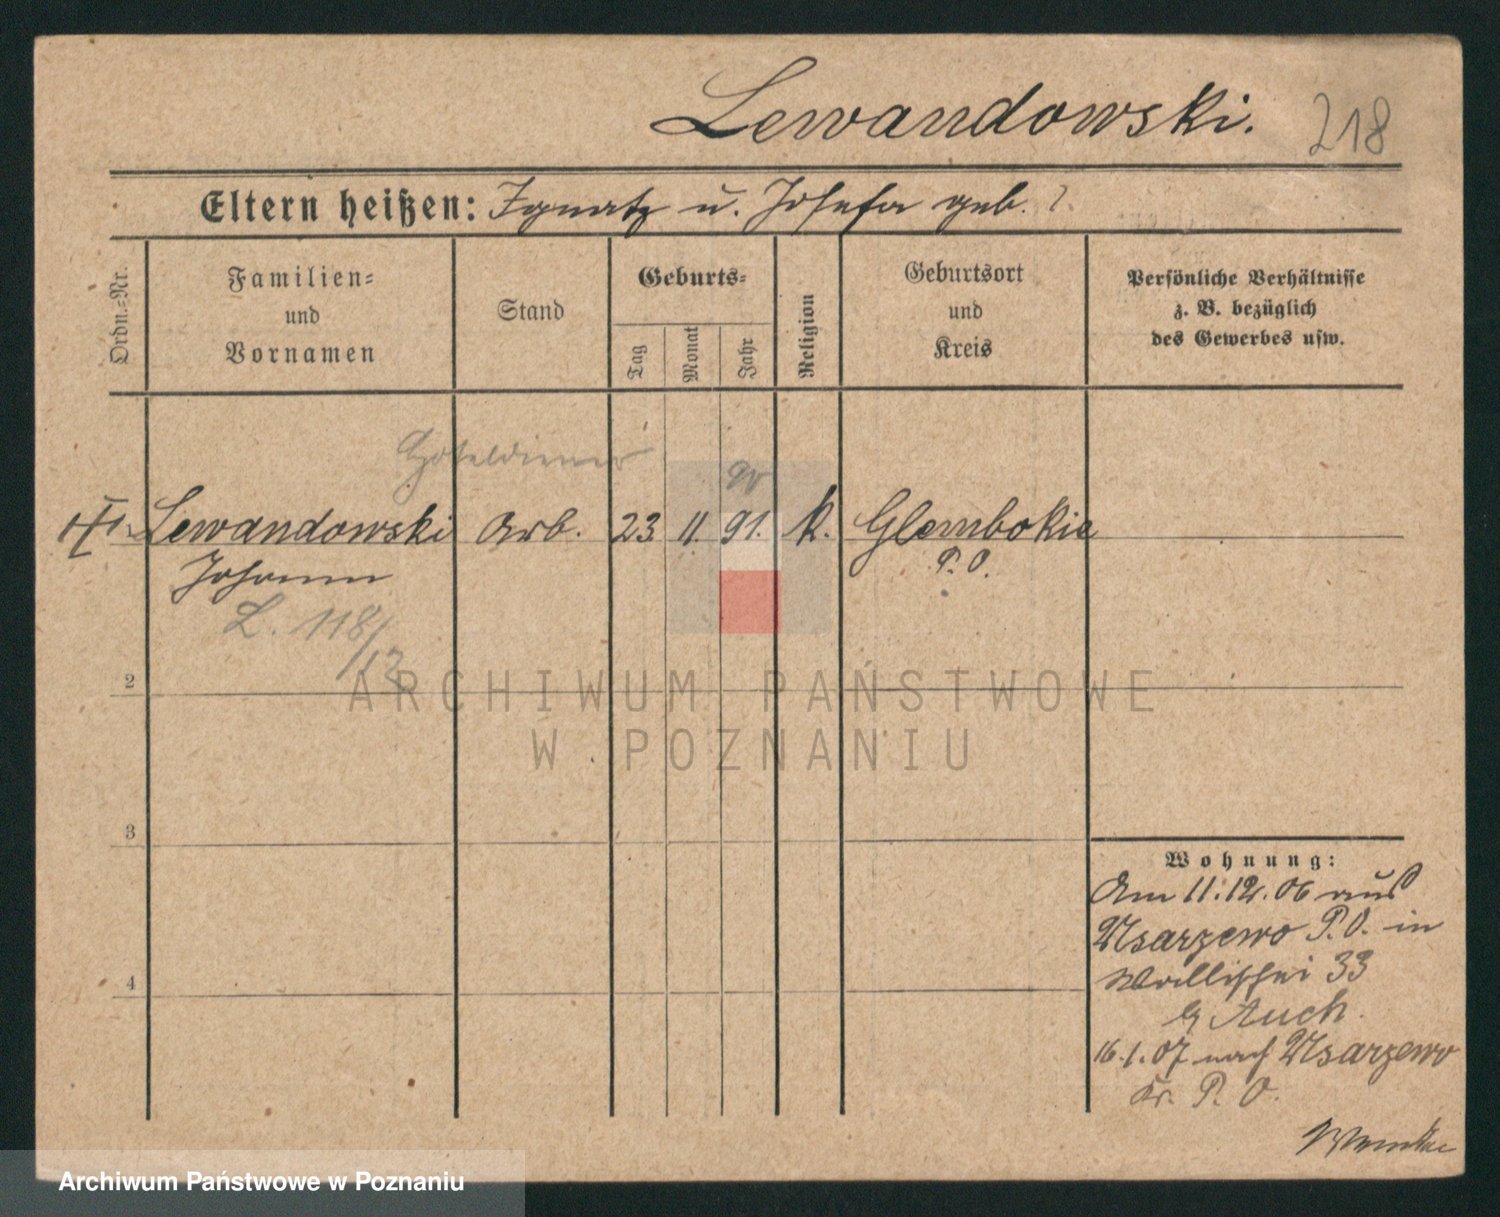 Lewandowski. 218
Eltern heißen: Ignatz u. Josefa geb. ?
Ordn.-Nr.
Familien-
und
Vornamen
Stand
Geburts-
Tag
Monat
Jahr
Religion
Geburtsort
und
Kreis
Persönliche Verhältnisse
z. B. bezüglich
des Gewerbes usw.
90
Lewandowski Arb. 23 11. 91. k. Glembokie
Johann P. O.
L. 118/12
2
ARCHIWUM PAŃSTWOWE
W POZNANIU
3
Wohnung:
Am 11.12.06 aus
Usarzewo P.O. in
Wallischei 33
b/ Auch.
4
16.1.07 nach Usarzewo
Kr. P. O.
Archiwum Państwowe w Poznaniu